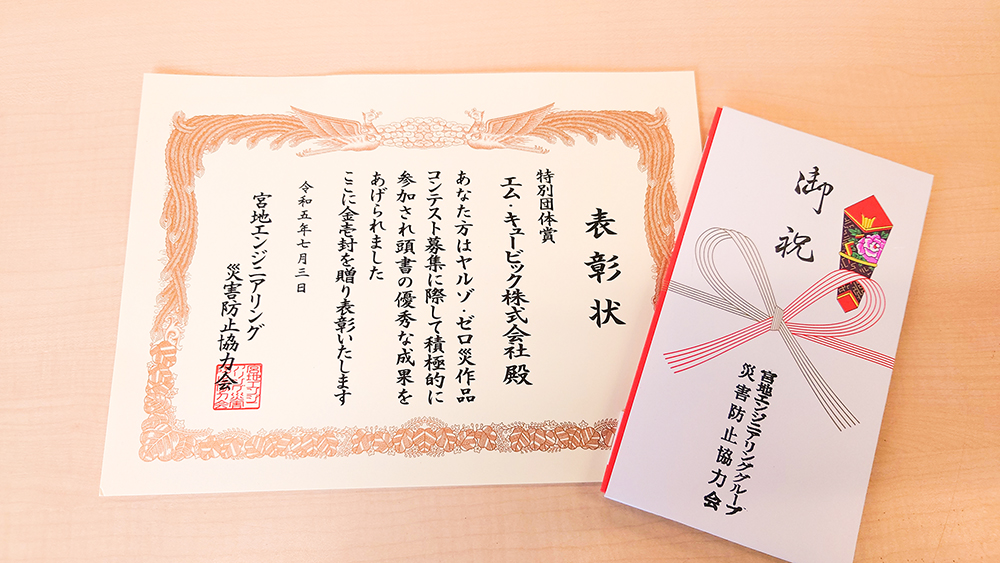 表彰状
特別団体賞
エム・キュービック株式会社 殿
あなた方はヤルゾ・ゼロ災作品
コンテスト募集に際して積極的に
参加され頭書の優秀な成果を
あげられました
ここに金壱封を贈り表彰いたします
令和五年七月三日
宮地エンジニアリング
災害防止協力会
御祝
宮地エンジニアリンググループ
災害防止協力会